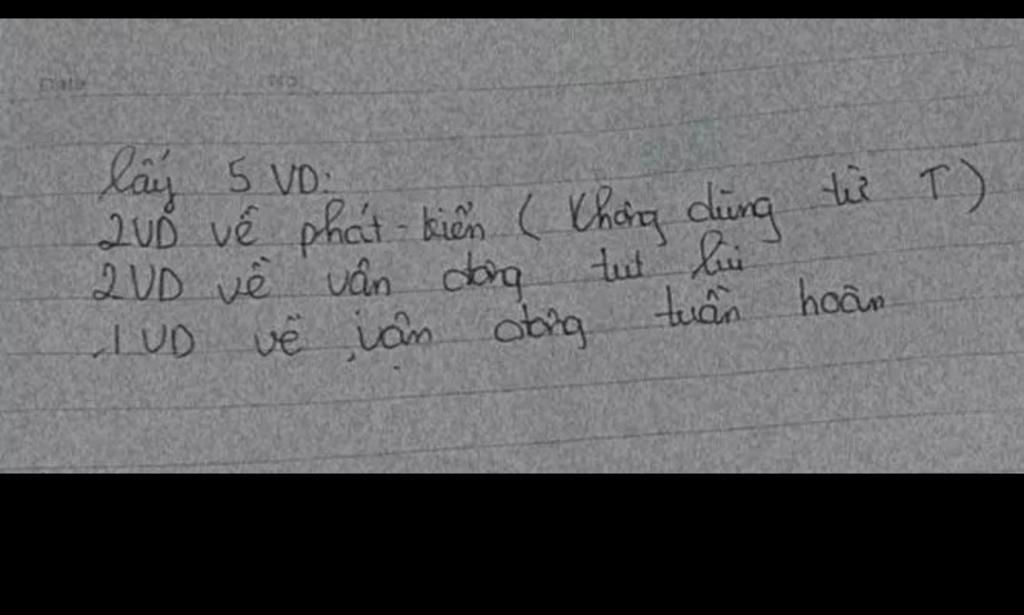 Date No
lấy 5 VD:
2VD về phát-kiến ( Không dùng từ T )
2VD về vận động tụt lùi
.1 VD về vận động tuần hoàn